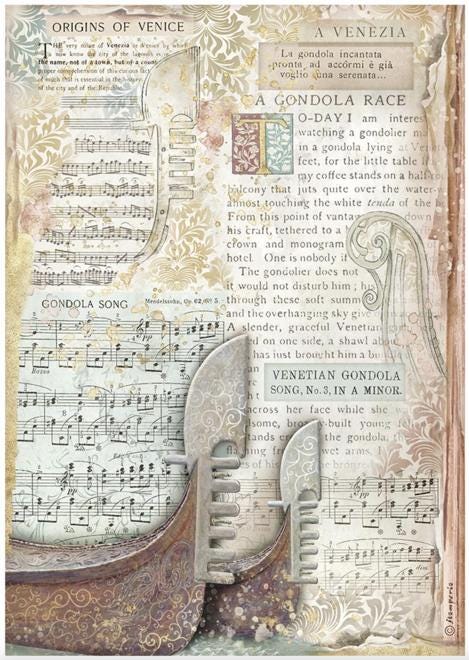 ORIGINS OF VENICE
THE very name of Venezia or Venice by which
we now know the city of the lagoons is
the name, not of a town, but of a count
proper comprehension of this curious fact
of much that is essential in the history
of the city and of the Republic.
A VENEZIA
La gondola incantata
pronta ad accórmi è già
voglio una serenata...
A GONDOLA RACE
TO-DAY I am interes
watching a gondolier m
in a gondola lying at Vene
feet, for the little table
my coffee stands on a half-ro
balcony that juts quite over the water-
almost touching the white tenda of the
From this point of vantag down
his craft, tethered to a
crown and monogram
hotel. One is nobody if
The gondolier does not
it would not disturb him ; his
through these soft summe
and the overhanging sky give
A slender, graceful Venetian
ed on one side, a shawl abo
has just brought him a b
GONDOLA SONG
Mendelssohn, Op. 62, Nº 5
VENETIAN GONDOLA
SONG, No. 3, IN A MINOR.
across her face while she wa
some, broad-built young
the gondola, th
wet arms.
es of his
© Stamperia